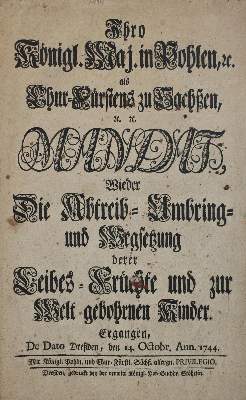 Ihro
Königl. Maj. in Pohlen, ꝛc.
als
Chur-Fürstens zu Sachßen,
ꝛc. ꝛc.
MANDAT,
Wieder
Die Abtreib- Umbring-
und Wegsetzung
derer
Leibes-Früchte und zur
Welt gebohrnen Kinder.
Ergangen,
De Dato Dreßden, den 14. Octobr. Ann. 1744.
Mit Königl. Pohln. und Chur-Fürstl. Sächs. allergn. PRIVILEGIO.
Dreßden, gedruckt bey der verwitt. Königl. Hof-Buchdr. Stößelin.